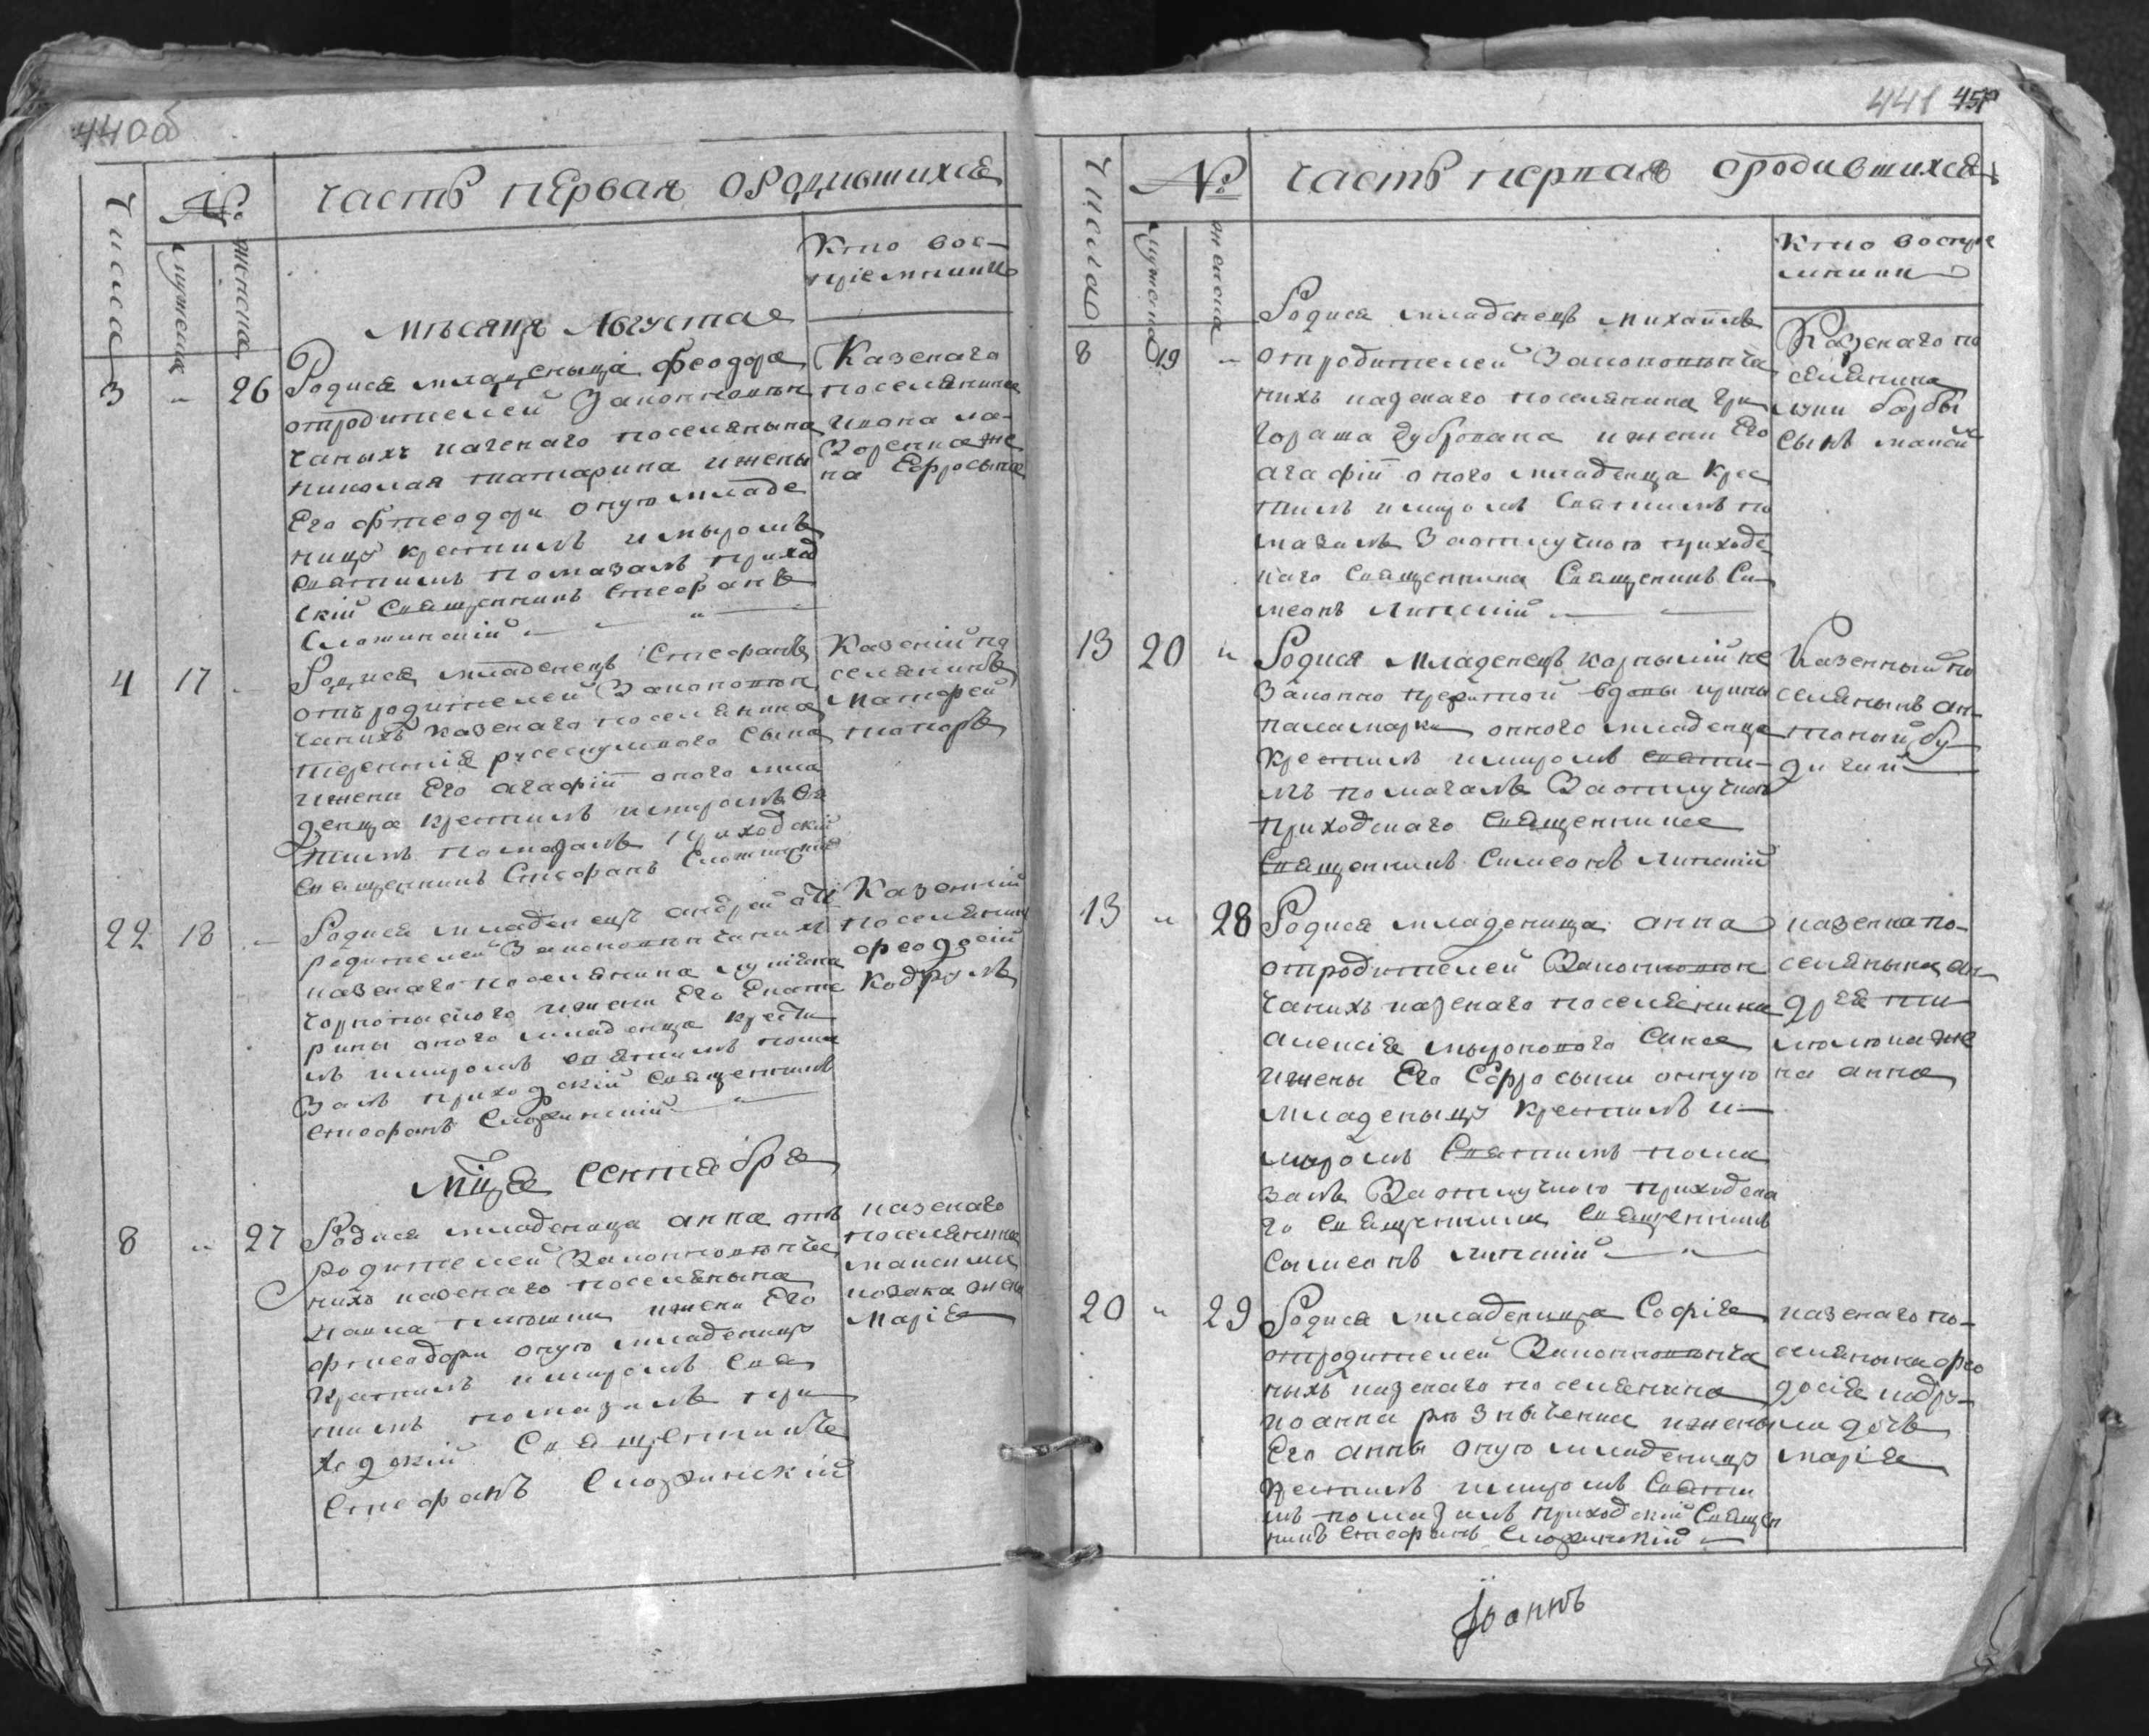 440об
Числа
№
мужеска
женска
Часть первая о родившихся
Кто вос-
пріемники
Мѣсяця Августа
3 " 26
Родися младеныца феодора
отродителей Законновѣн
чаныхъ казенаго поселянына
николая татарина и жены
Его фтеодори оную младе
ницу крестилъ и мыромъ
святимъ помазалъ приход
скій Священникъ Стефанъ
Сложинскій
Казенаго
поселянина
ивона ла-
зоренка же
на Ефросыня
4 17 "
Родися младенецъ Стефанъ
отъ родителей Законновѣн
чанихъ казенаго поселянина
терентія русснумного сына
и жени Его агафіи оного мла
денца крестилъ и миромъ свя
тимъ помазалъ приходскій
Священникъ Стефанъ Сложинскій
Казеній по
селянинъ
матфей
токоръ
22 18 "
Родися младенецъ андрей отъ
родителей Законновѣнчанихъ
казенаго поселянина лукіяна
чорнопиского и жени Его Екате
рини оного младенца крести
лъ и миромъ святимъ пома
залъ приходскій Священникъ
Стефанъ Сложинскій
Казенній
поселянинъ
феодосій
кодруль
Мца Сентября
8 " 27
Родися младеница анна отъ
родителей Законновѣнча
нихъ казенаго поселянына
павла плюшки и жени Его
фтеодори оную младеницу
Крстилъ и миромъ Свя
тимъ помазалъ при
ходскій Священникъ
Стефанъ Сложинскій
казенаго
поселянина
максима
козака жена
Марія
441 459
Числа
№
мужеска
женска
Часть первая о родившихся
Кто воспріе
мники
8 19 "
Родися младенецъ михаилъ
отродителей Законновѣнча
нихъ казенаго поселянина гри
гораша дубрована и жени Его
агафіи оного младенца Крес
тилъ и миромъ Святимъ по
мазалъ Заотлучного приходс
каго Священника Священикъ Си
меонъ Липскій
Казенаго по
селянина
луки борбы
сынъ моисей
13 20 "
Родися Младенецъ корнылій не
законно прежитой вдовы ирины
паламарки онного младенца
Крестилъ и миромъ святи-
мъ помазалъ Заотлучного
приходскаго Священника
Священникъ Симеонъ Липскій
Казенный по
селянынъ ан-
тоній бу-
дигай
13 " 28
Родися младеница анна
отродителей Законновѣн
чанихъ казенаго поселянина
алексія мыронового сина
и жены Его Ефросыни онную
младеныцу крестилъ и
миромъ Святимъ пома
залъ Заотлучного приходска
го Священника Священникъ
Симеонъ Липскій
казенна по-
селянына, ан
дрея пи
молюна же
на анна
20 " 29
Родися младеница Софія
отродителей Законновѣнча
ныхъ казенаго поселянина
иоанна рѣзныченка и жены
Его анны оную младеницу
крестилъ и миромъ Святи
мъ помазалъ приходскій Священ
никъ Стефанъ Сложинскій
казенаго по-
селяныка фео
досія кодру-
ла дочь
марія
Іоаннъ